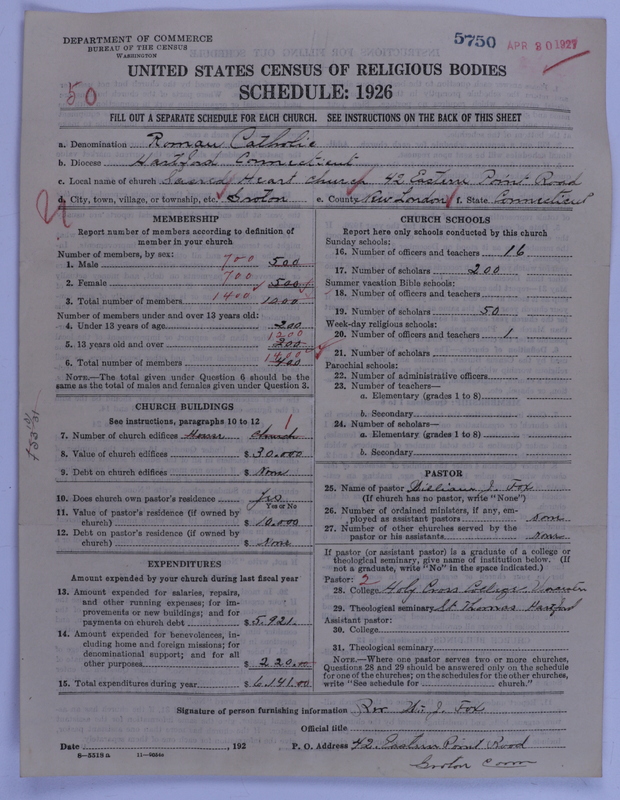 DEPARTMENT OF COMMERCE
BUREAU OF THE CENSUS
WASHINGTON
5750 APR 30 1927
UNITED STATES CENSUS OF RELIGIOUS BODIES
50
SCHEDULE: 1926
FILL OUT A SEPARATE SCHEDULE FOR EACH CHURCH. SEE INSTRUCTIONS ON THE BACK OF THIS SHEET
a. Denomination Roman Catholic
b. Diocese Hartford Connecticut
c. Local name of church Sacred Heart Church 42 Eastern Point Road
d. City, town, village, or township, etc. Groton e. County New London f. State Connecticut
MEMBERSHIP
Report number of members according to definition of
member in your church
Number of members, by sex:
1. Male 700 500
2. Female 700 500
3. Total number of members 1400 1000
Number of members under and over 13 years old:
4. Under 13 years of age 200
5. 13 years old and over 1200 200
6. Total number of members 1400 400
NOTE.—The total given under Question 6 should be the
same as the total of males and females given under Question 3.
CHURCH BUILDINGS
See instructions, paragraphs 10 to 12
7. Number of church edifices 1 Church
8. Value of church edifices $ 30.000
9. Debt on church edifices $ None
10. Does church own pastor's residence Yes
Yes or No
11. Value of pastor's residence (if owned by
church) $ 10.000
12. Debt on pastor's residence (if owned by
church) $ None
EXPENDITURES
Amount expended by your church during last fiscal year
13. Amount expended for salaries, repairs,
and other running expenses; for im-
provements or new buildings; and for
payments on church debt $ 5.921.
14. Amount expended for benevolences, in-
cluding home and foreign missions; for
denominational support; and for all
other purposes $ 220.00
15. Total expenditures during year $ 6.141.00
CHURCH SCHOOLS
Report here only schools conducted by this church
Sunday schools:
16. Number of officers and teachers 16
17. Number of scholars 200
Summer vacation Bible schools:
18. Number of officers and teachers
19. Number of scholars 50
Week-day religious schools:
20. Number of officers and teachers 1
21. Number of scholars
Parochial schools:
22. Number of administrative officers
23. Number of teachers—
a. Elementary (grades 1 to 8)
b. Secondary
24. Number of scholars—
a. Elementary (grades 1 to 8)
b. Secondary
PASTOR
25. Name of pastor William J. Fox
(If church has no pastor, write "None")
26. Number of ordained ministers, if any, em-
ployed as assistant pastors none
27. Number of other churches served by the
pastor or his assistants None
If pastor (or assistant pastor) is a graduate of a college or
theological seminary, give name of institution below. (If
not a graduate, write "No" in the space indicated.)
Pastor: 2
28. College Holy Cross College Worcester
29. Theological seminary St Thomas Hartford
Assistant pastor:
30. College
31. Theological seminary
NOTE.—Where one pastor serves two or more churches,
Questions 28 and 29 should be answered only on the schedule
for one of the churches; on the schedules for the other churches,
write "See schedule for church."
Signature of person furnishing information Rev Wm J. Fox
Official title
Date , 192 P. O. Address 42 Eastern Point Road
8—5518a Groton Conn